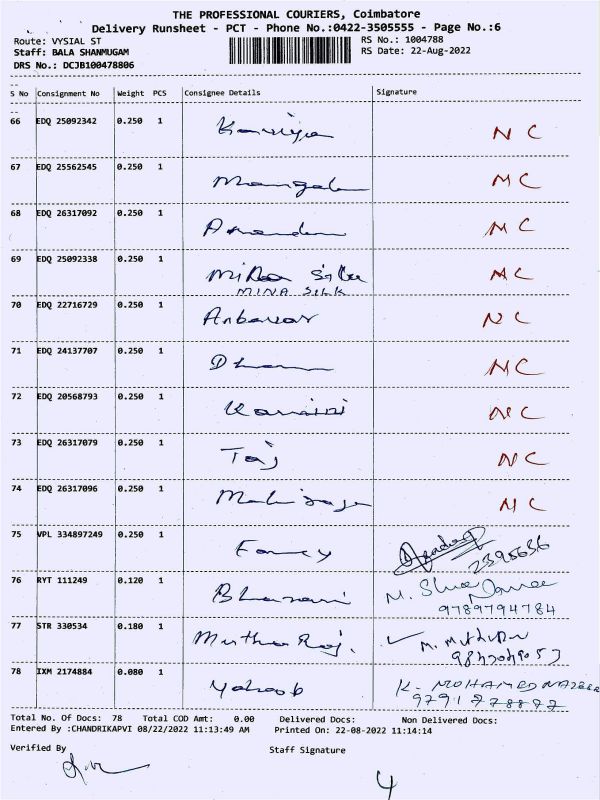 THE PROFESSIONAL COURIERS, Coimbatore
Delivery Runsheet - PCT - Phone No.:0422-3505555 - Page No.:6
Route: VYSIAL ST RS No.: 1004788
Staff: BALA SHANMUGAM RS Date: 22-Aug-2022
DRS No.: DCJB100478806
S No Consignment No Weight PCS Consignee Details Signature
66 EDQ 25092342 0.250 1 NC
67 EDQ 25562545 0.250 1 Mangal NC
68 EDQ 26317092 0.250 1 NC
69 EDQ 25092338 0.250 1 Mina Silk NC
MINA SILK
70 EDQ 22716729 0.250 1 Anbaras NC
71 EDQ 24137707 0.250 1 NC
72 EDQ 20568793 0.250 1 NC
73 EDQ 26317079 0.250 1 Taj NC
74 EDQ 26317096 0.250 1 NC
75 VPL 334897249 0.250 1 Fancy
2395636
76 RYT 111249 0.120 1 Bhavani M.
9789794784
77 STR 330534 0.180 1 Muthu Raj. ✓ M.
78 IXM 2174884 0.080 1 Yakoob K. MOHAMED NAZEER
Total No. Of Docs: 78 Total COD Amt: 0.00 Delivered Docs: Non Delivered Docs:
Entered By :CHANDRIKAPVI 08/22/2022 11:13:49 AM Printed On: 22-08-2022 11:14:14
Verified By Staff Signature
4